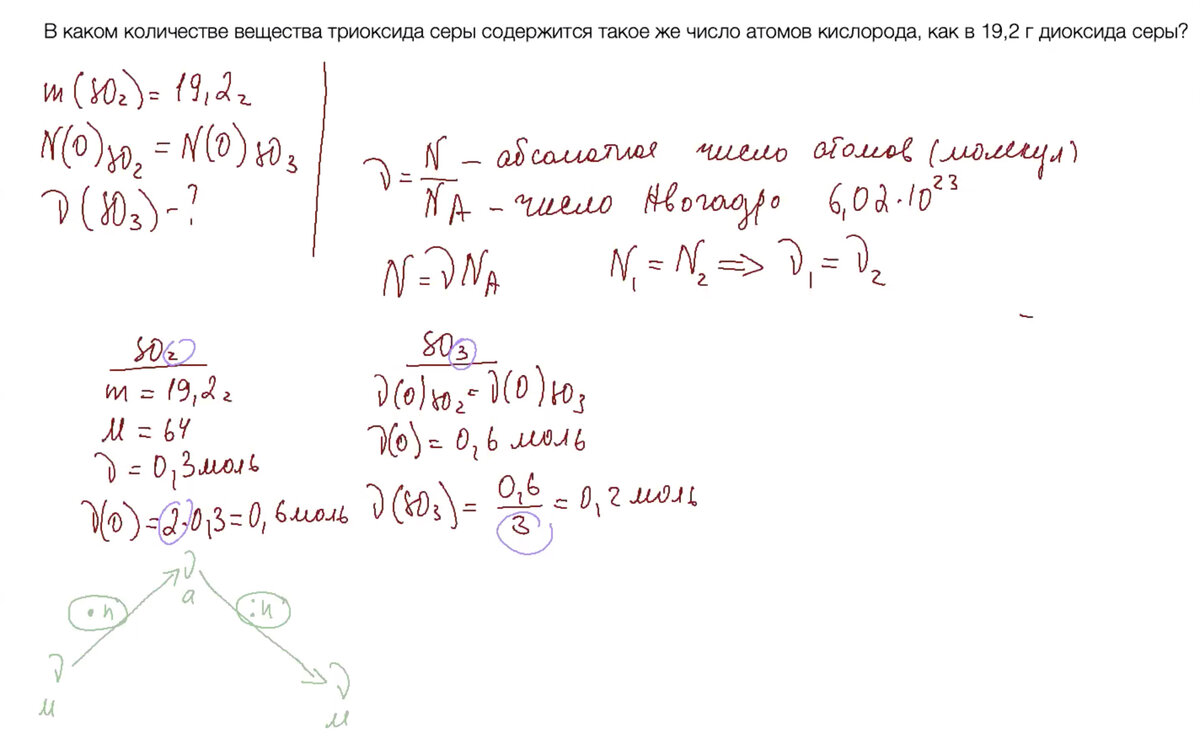 В каком количестве вещества триоксида серы содержится такое же число атомов кислорода, как в 19,2 г диоксида серы?
m(SO₂) = 19,2 г
N(O)SO₂ = N(O)SO₃
ν(SO₃) - ?
ν = N/N_A
N – абсолютное число атомов (молекул)
N_A – число Авогадро 6,02·10²³
N = νN_A
N₁ = N₂ ⇒ ν₁ = ν₂
SO₂
m = 19,2 г
M = 64
ν = 0,3 моль
ν(O) = 2·0,3 = 0,6 моль
SO₃
ν(O)SO₂ = ν(O)SO₃
ν(O) = 0,6 моль
ν(SO₃) = 0,6/3 = 0,2 моль
ν
а
·n
:n
ν
м
ν
м